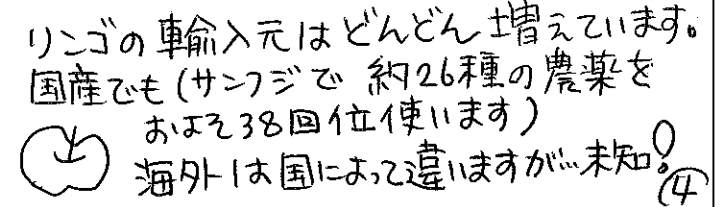 リンゴの輸入元はどんどん増えています。
国産でも(サンフジで約26種の農薬を
およそ38回位使います)
海外は国によって違いますが…未知!
④